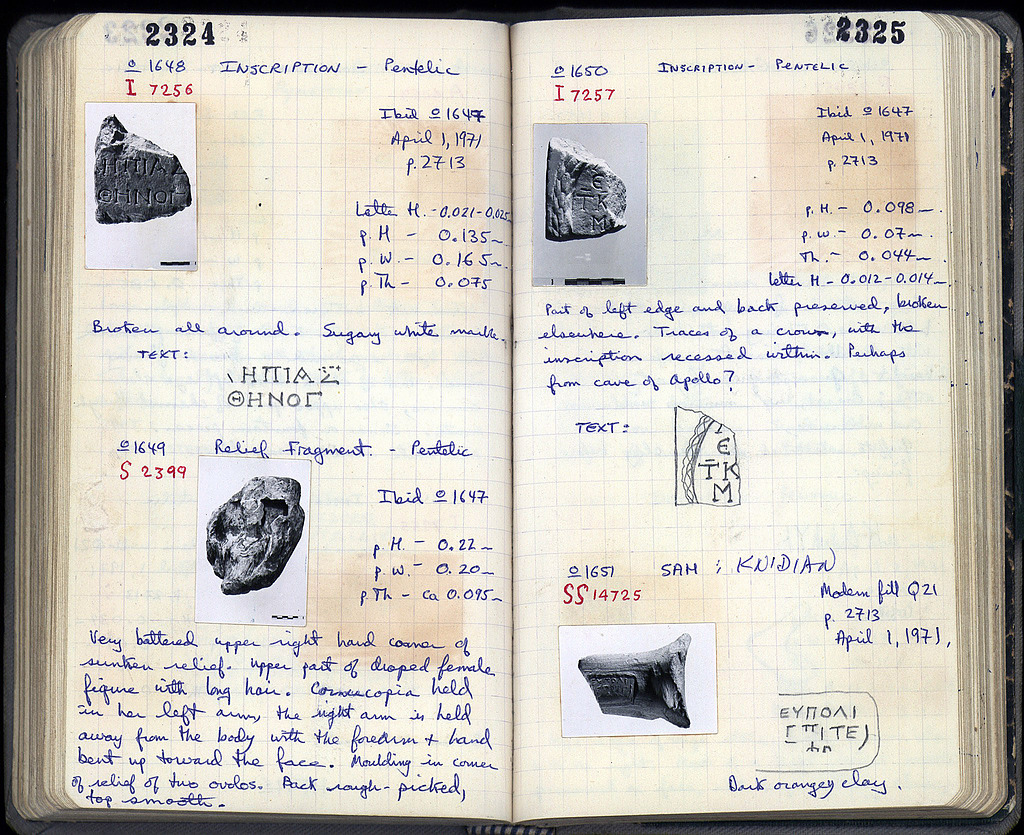 2324
o 1648 INSCRIPTION - Pentelic
I 7256
Ibid o 1647
April 1, 1971
p. 2713
ΗΠΙΑΣ
ΘΗΝΟΓ
Letter H. - 0.021-0.025
p. H - 0.135 m.
p. W. - 0.165 m.
p. Th - 0.075
Broken all around. Sugary white marble.
TEXT:
\ ΗΠΙΑΣ
ΘΗΝΟΓ
o 1649 Relief Fragment. - Pentelic
S 2399
Ibid o 1647
p. H. - 0.22 m
p. W. - 0.20 m
p. Th - ca 0.095 m
Very battered upper right hand corner of
sunken relief. Upper part of draped female
figure with long hair. Cornucopia held
in her left arm, the right arm is held
away from the body with the forearm + hand
bent up toward the face. Moulding in corner
of relief of two ovolos. Back rough-picked,
top smooth.
2325
o 1650 INSCRIPTION - PENTELIC
I 7257
Ibid o 1647
April 1, 1971
p. 2713
Ε
ΤΚ
Μ
p. H. - 0.098 m.
p. W. - 0.07 m.
Th. - 0.044 m.
Letter H - 0.012-0.014 m.
Part of left edge and back preserved, broken
elsewhere. Traces of a crown, with the
inscription recessed within. Perhaps
from cave of Apollo?
TEXT:
Ι
Ε
ΤΚ
Μ
o 1651 SAM : KNIDIAN
SS 14725
Modern fill Q21
p. 2713
April 1, 1971,
ΕΥΠΟΛΙ
ΓΠΙΤΕ
Dark orangey clay.